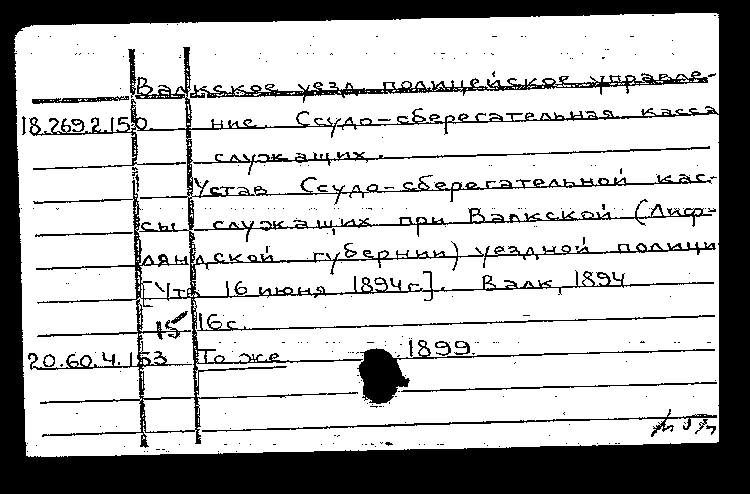 Валкское уезд. полицейское управле-
18.269.2.150 ние. Ссудо-сберегательная касса
служащих.
Устав Ссудо-сберегательной кас-
сы служащих при Валкской (Лиф-
ляндской губернии) уездной полиции
[Утв 16 июня 1894г.]. Валк, 1894
15 16с.
20.60.4.153 То же 1899